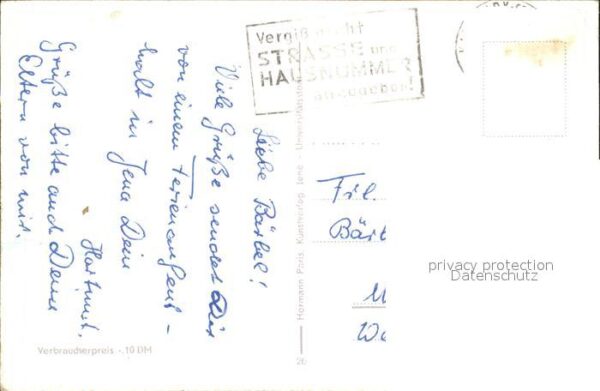 Liebe Bärbel!
Viele Grüße sendet Dir
von einem Ferienaufent-
halt in Jena Dein
Hartmut.
Grüße bitte auch Deine
Eltern von mir.
Vergiß nicht
STRASSE und
HAUSNUMMER
anzugeben!
Frl.
Bärb
privacy protection
Datenschutz
Hermann Paris, Kunstverlag, Jena - Universitätsstr
Verbraucherpreis -.10 DM
26